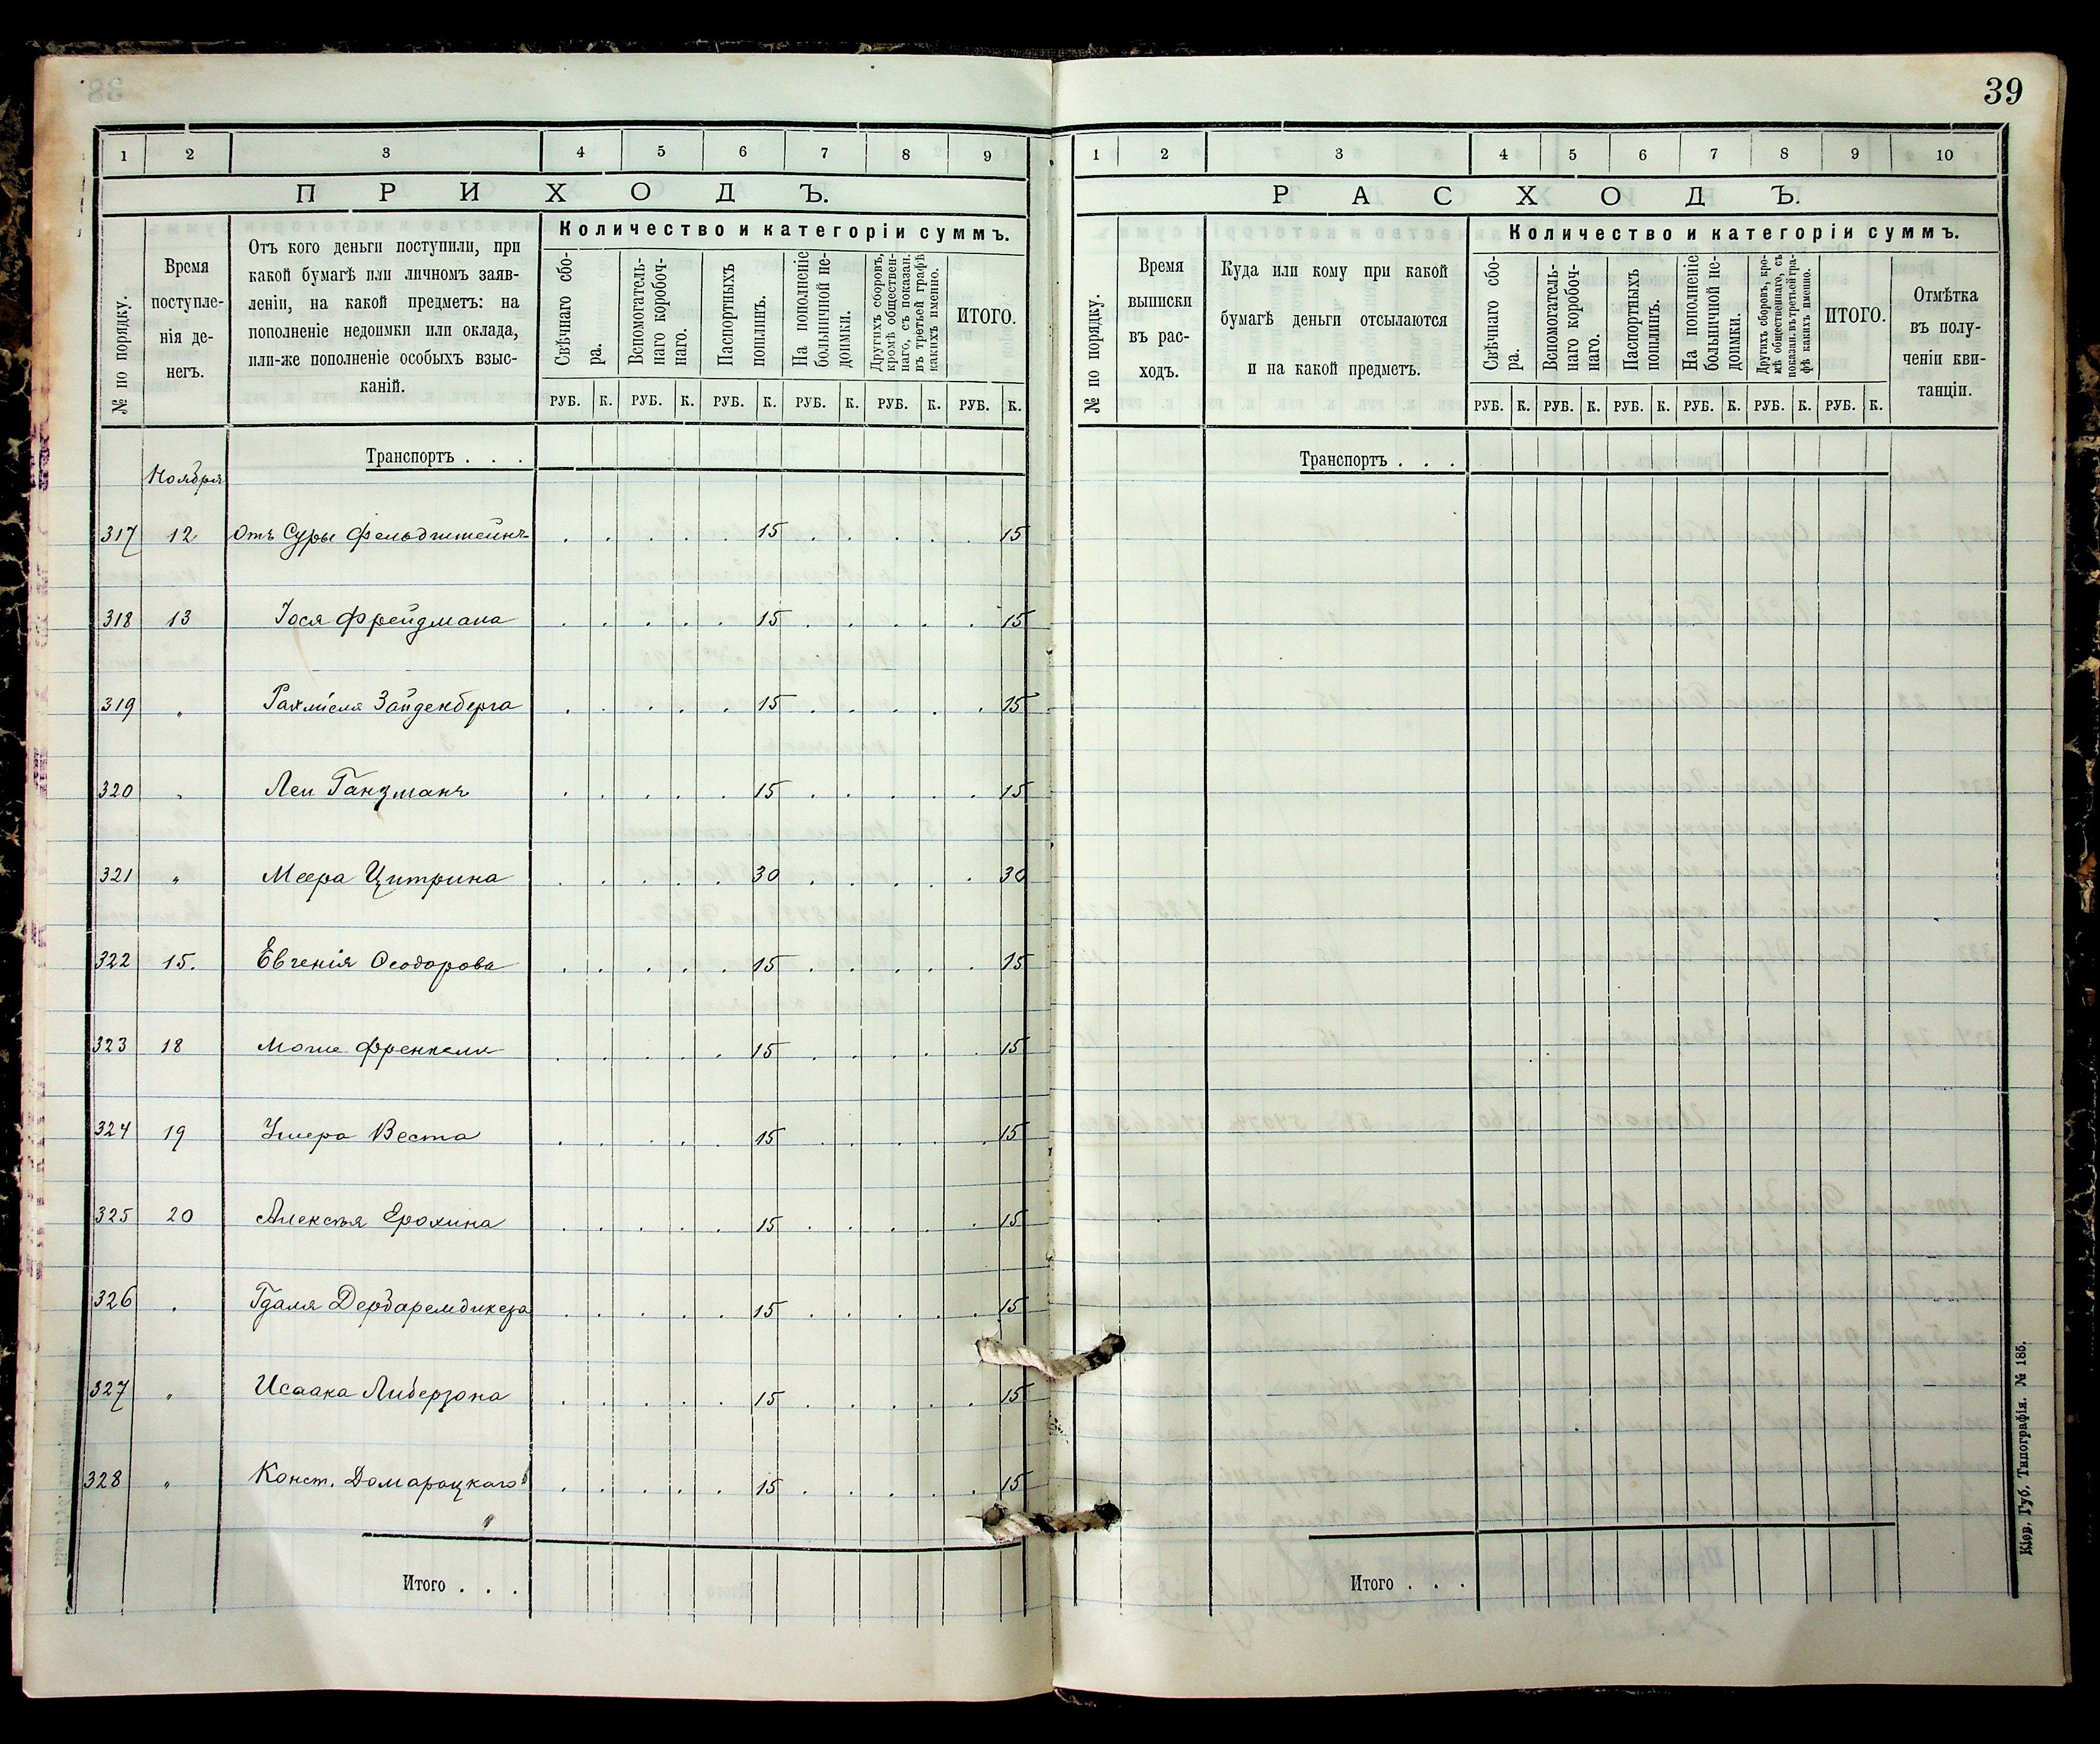 39
1 2 3 4 5 6 7 8 9
ПРИХОДЪ.
№ по порядку.
Время поступле-
нія де-
негъ.
Отъ кого деньги поступили, при
какой бумагѣ или личномъ заяв-
леніи, на какой предметъ: на
пополненіе недоимки или оклада,
или-же пополненіе особыхъ взыс-
каній.
Количество и категоріи суммъ.
Свѣчнаго сбо-
ра.
Вспомогатель-
наго коробоч-
наго.
Паспортныхъ
пошлинъ.
На пополненіе
больничной не-
доимки.
Другихъ сборовъ,
кромѣ обществен-
наго, съ показан.
въ третьей графѣ
какихъ именно.
ИТОГО.
РУБ. К. РУБ. К. РУБ. К. РУБ. К. РУБ. К. РУБ. К.
Транспортъ . . .
Ноября
317 12 Отъ Суры Фельдштейнъ . . . . . 15 . . . . . 15
318 13 Іося Фрейдмана . . . . . 15 . . . . . 15
319 " Рахмiеля Зайденберга . . . . . 15 . . . . . 15
320 " Леи Ганзманъ . . . . . 15 . . . . . 15
321 " Меера Цитрина . . . . . 30 . . . . . 30
322 15. Евгенія Ѳеодорова . . . . . 15 . . . . . 15
323 18 Мошe Френкеля . . . . . 15 . . . . . 15
324 19 Веста . . . . . 15 . . . . . 15
325 20 Алексѣя Ерохина . . . . . 15 . . . . . 15
326 " Гдаля Дербаремдикера . . . . . 15 . . . . . 15
327 " Исаака Либерзона . . . . . 15 . . . . . 15
328 " Конст. Домарацкаго . . . . . 15 . . . . . 15
Итого . . .
1 2 3 4 5 6 7 8 9 10
РАСХОДЪ.
№ по порядку.
Время
выписки
въ рас-
ходъ.
Куда или кому при какой
бумагѣ деньги отсылаются
и на какой предметъ.
Количество и категоріи суммъ.
Свѣчнаго сбо-
ра.
Вспомогатель-
наго коробоч-
наго.
Паспортныхъ
пошлинъ.
На пополненіе
больничной не-
доимки.
Другихъ сборовъ, кро-
мѣ общественнаго, съ
показан. въ третьей гра-
фѣ какихъ именно.
ИТОГО.
Отмѣтка
въ полу-
ченіи кви-
танціи.
РУБ. К. РУБ. К. РУБ. К. РУБ. К. РУБ. К. РУБ. К.
Транспортъ . . .
Итого . . .
Кіев. Губ. Типографія. № 185.